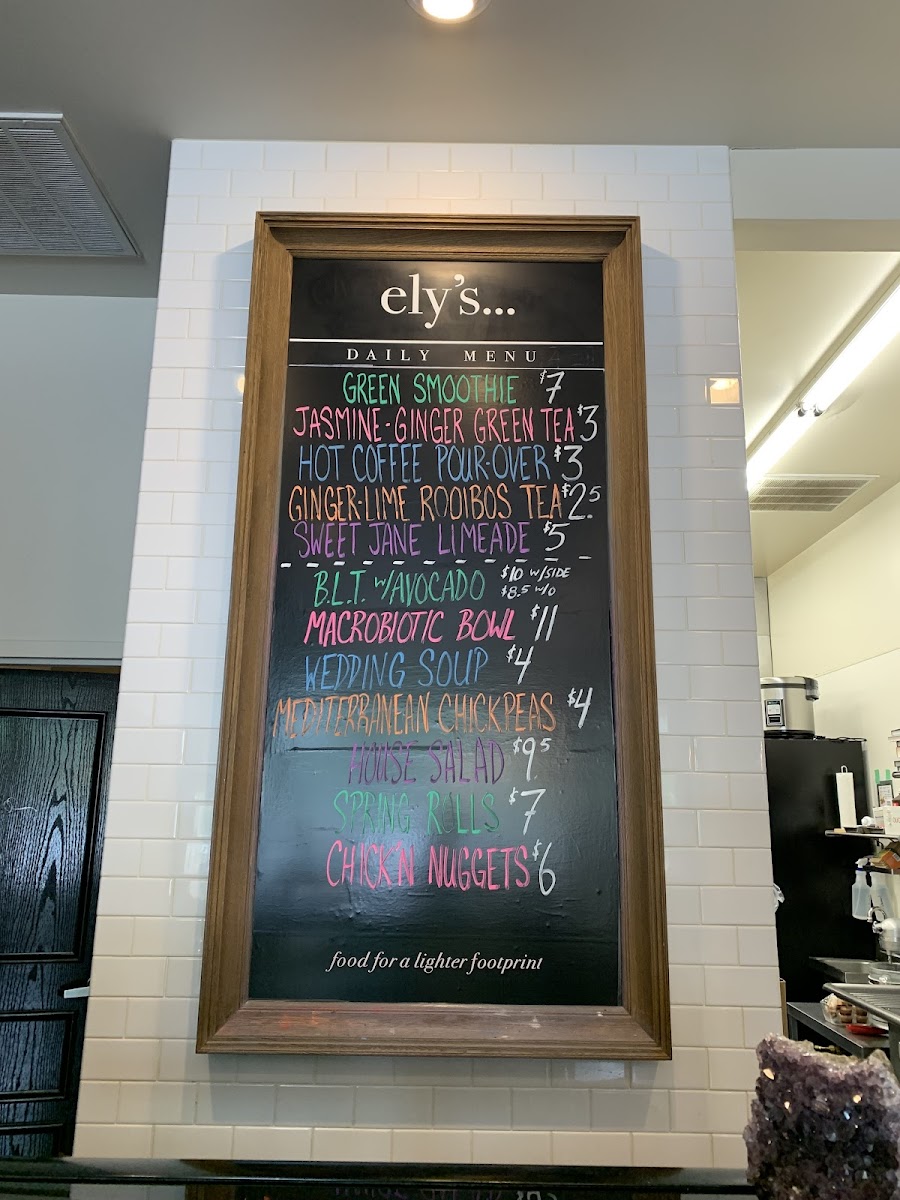 ely's...
DAILY MENU
GREEN SMOOTHIE $7
JASMINE-GINGER GREEN TEA $3
HOT COFFEE POUR-OVER $3
GINGER-LIME ROOIBOS TEA $2.5
SWEET JANE LIMEADE $5
B.L.T. w/AVOCADO $10 w/SIDE
$8.5 w/o
MACROBIOTIC BOWL $11
WEDDING SOUP $4
MEDITERRANEAN CHICKPEAS $4
HOUSE SALAD $9.5
SPRING ROLLS $7
CHICK'N NUGGETS $6
food for a lighter footprint